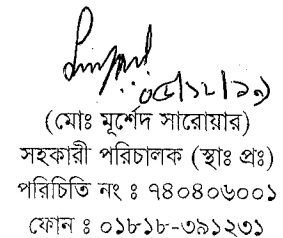 ০৫/১২/১৯
(মোঃ মূর্শেদ সারোয়ার)
সহকারী পরিচালক (স্থাঃ প্রঃ)
পরিচিতি নং : ৭৪০৪০৬০০১
ফোন : ০১৮১৮-৩৯১২৩১